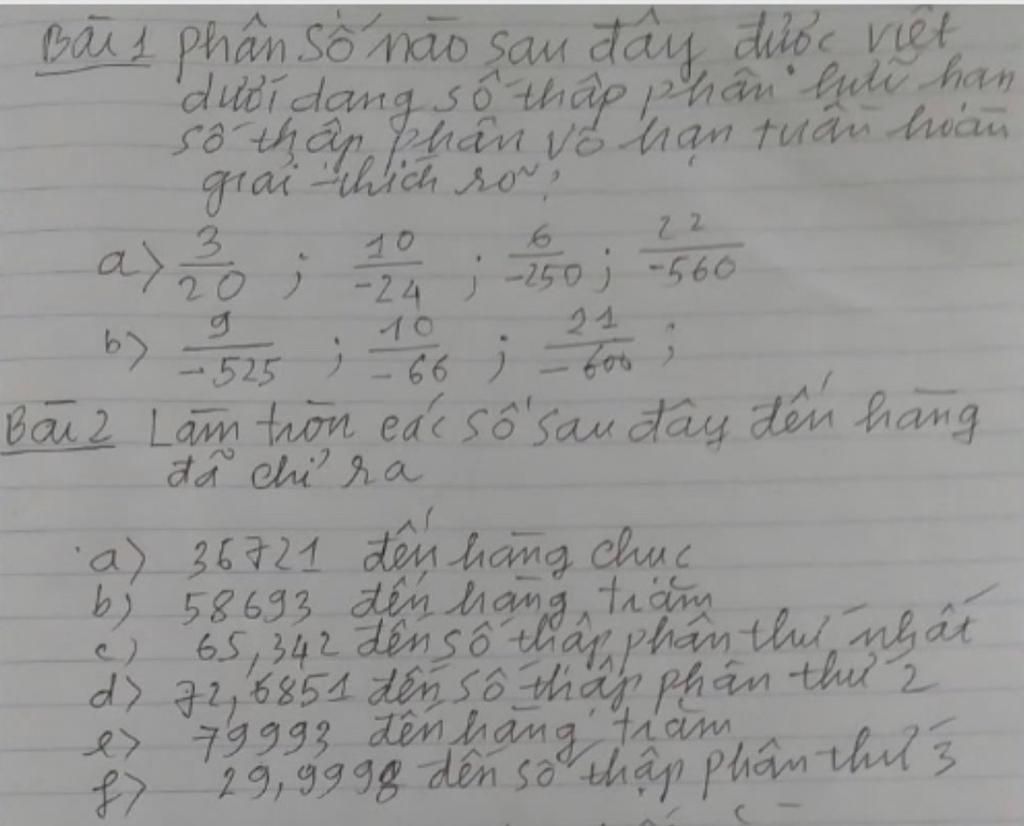 Bài 1 phân số nào sau đây được viết
dưới dạng số thập phân hữu hạn
số thập phân vô hạn tuần hoàn
giải thích rõ?
a) 3/20 ; 10/-24 ; 6/-250 ; 22/-560
b) 9/-525 ; 10/-66 ; 21/-600 ;
Bài 2 Làm tròn các số sau đây đến hàng
đã chỉ ra
a) 36721 đến hàng chục
b) 58693 đến hàng trăm
c) 65,342 đến số thập phân thứ nhất
d) 72,6851 đến số thập phân thứ 2
e) 79993 đến hàng trăm
f) 29,9998 đến số thập phân thứ 3